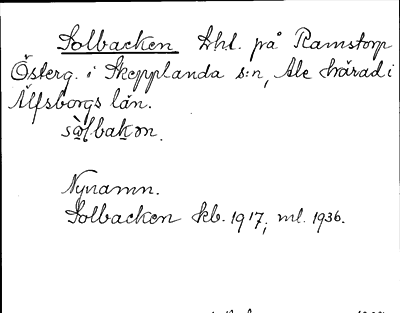 Solbacken Lht. på Ramstorp
Österg. i Skepplanda s:n, Ale härad i
Älfsborgs län.
sòlbakən.
Nynamn.
Solbacken kb. 1917, ml. 1936.